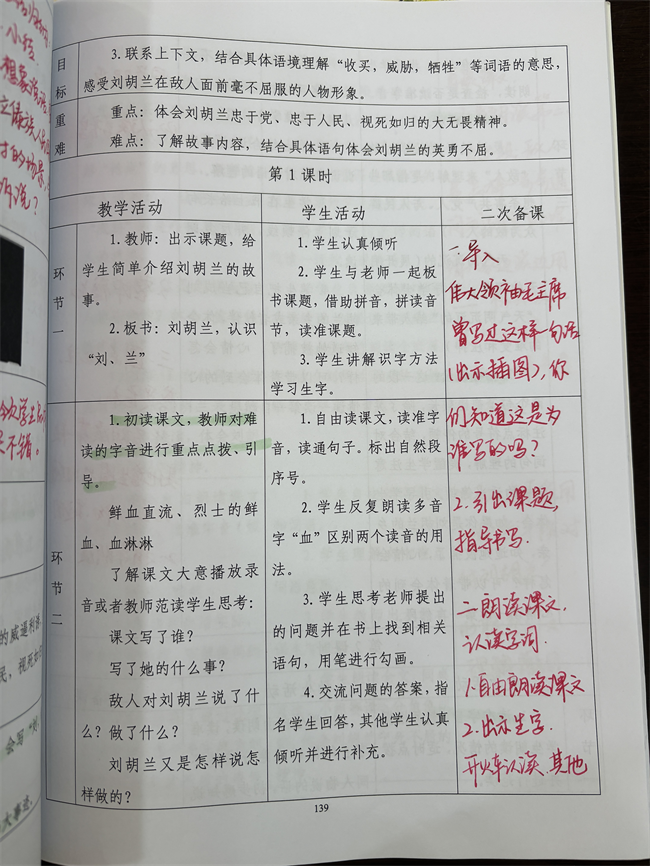 目标
3. 联系上下文，结合具体语境理解“收买，威胁，牺牲”等词语的意思，
感受刘胡兰在敌人面前毫不屈服的人物形象。
重难
重点：体会刘胡兰忠于党、忠于人民、视死如归的大无畏精神。
难点：了解故事内容，结合具体语句体会刘胡兰的英勇不屈。
第1课时
教学活动
学生活动
二次备课
环节一
1. 教师：出示课题，给
学生简单介绍刘胡兰的故
事。
2. 板书：刘胡兰，认识
“刘、兰”
1. 学生认真倾听
2. 学生与老师一起板
书课题，借助拼音，拼读音
节，读准课题。
3. 学生讲解识字方法
学习生字。
一导入
伟大领袖毛主席
曾写过这样一句话
(出示插图)，你
环节二
1. 初读课文，教师对难
读的字音进行重点点拨、引
导。
鲜血直流、烈士的鲜
血、血淋淋
了解课文大意播放录
音或者教师范读学生思考：
课文写了谁？
写了她的什么事？
敌人对刘胡兰说了什
么？做了什么？
刘胡兰又是怎样说怎
样做的？
1. 自由读课文，读准字
音，读通句子。标出自然段
序号。
2. 学生反复朗读多音
字“血”区别两个读音的用
法。
3. 学生思考老师提出
的问题并在书上找到相关
语句，用笔进行勾画。
4. 交流问题的答案，指
名学生回答，其他学生认真
倾听并进行补充。
们知道这是为
谁写的吗？
2. 引出课题，
指导书写.
二朗读课文，
认读字词.
1. 自由朗读课文
2. 出示生字.
开火车认读.其他
139
的威逼利诱
民，视死如
会写“刘
大事迹，